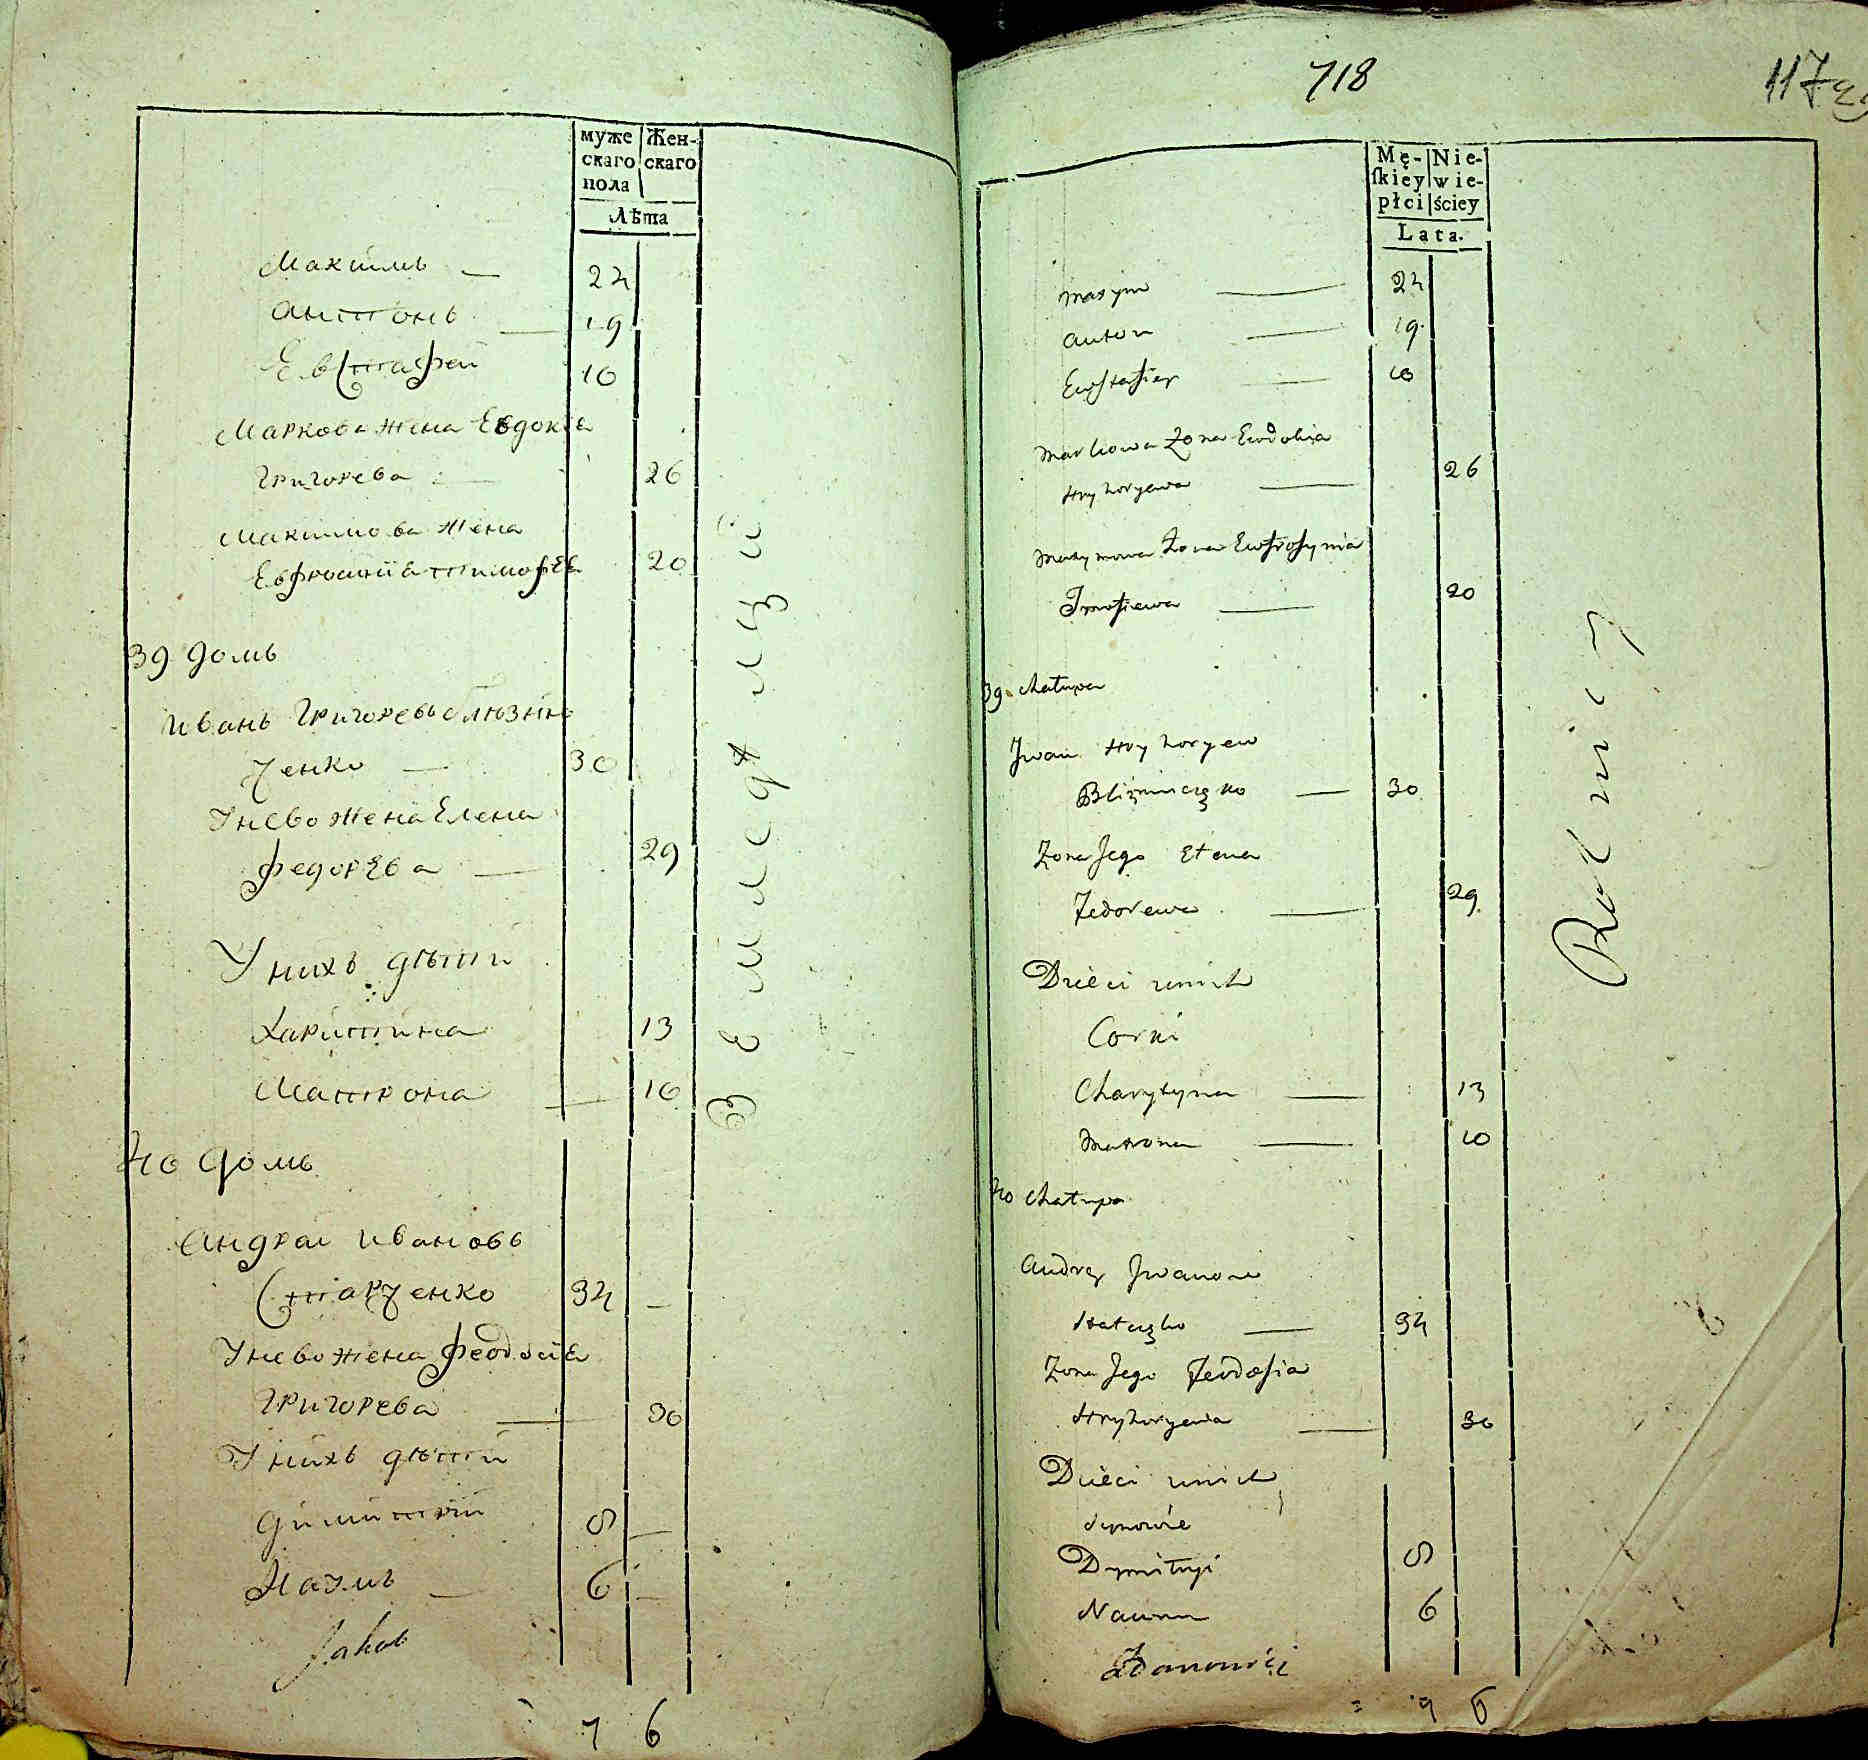 муже скаго пола
Жен- скаго
Лѣта
Максимъ — 24
Антонъ — 19
Евстафей 10
Маркова жена Евдокіа
Григорева — 26
Максимова жена
Евфросиніа Тимофѣа 20
39 домъ
Иванъ Григоревъ Близни
ченко — 30
У нево жена Елена
Федорѣва — 29
У нихъ дѣти
Харитина 13
Матрона — 10
40 домъ
Андрей Ивановъ
Старченко 34 —
У нево жена Феодосіа
Григорева — 30
У нихъ дѣти
Димитрій 8 —
Наумъ — 6 —
Jakub
7 6
718
117
Mę- ſkiey płci
Nie- wie- ściey
Lata.
Maxym — 24
Anton — 19
Ewstafiey — 10
Markowa Żona Ewdokia
Hryhoryewa — 26
Maxymowa Żona Ewfrosynia
Tmofiewa — 20
39. chałupa
Jwan Hryhoryew
Bliźniczęko — 30
Żona Jego Elena
Fedorewa — 29
Dzieci u nich
Corki
Charytyna — 13
Matrona — 10
40 chałupa
Andrey Jwanow
— 34
Żona Jego Feodosia
Hryhoryewa — 30
Dzieci u nich
Synowie
Dymitryi 8
Naum 6
Zdanowicz
6
Rolnicy